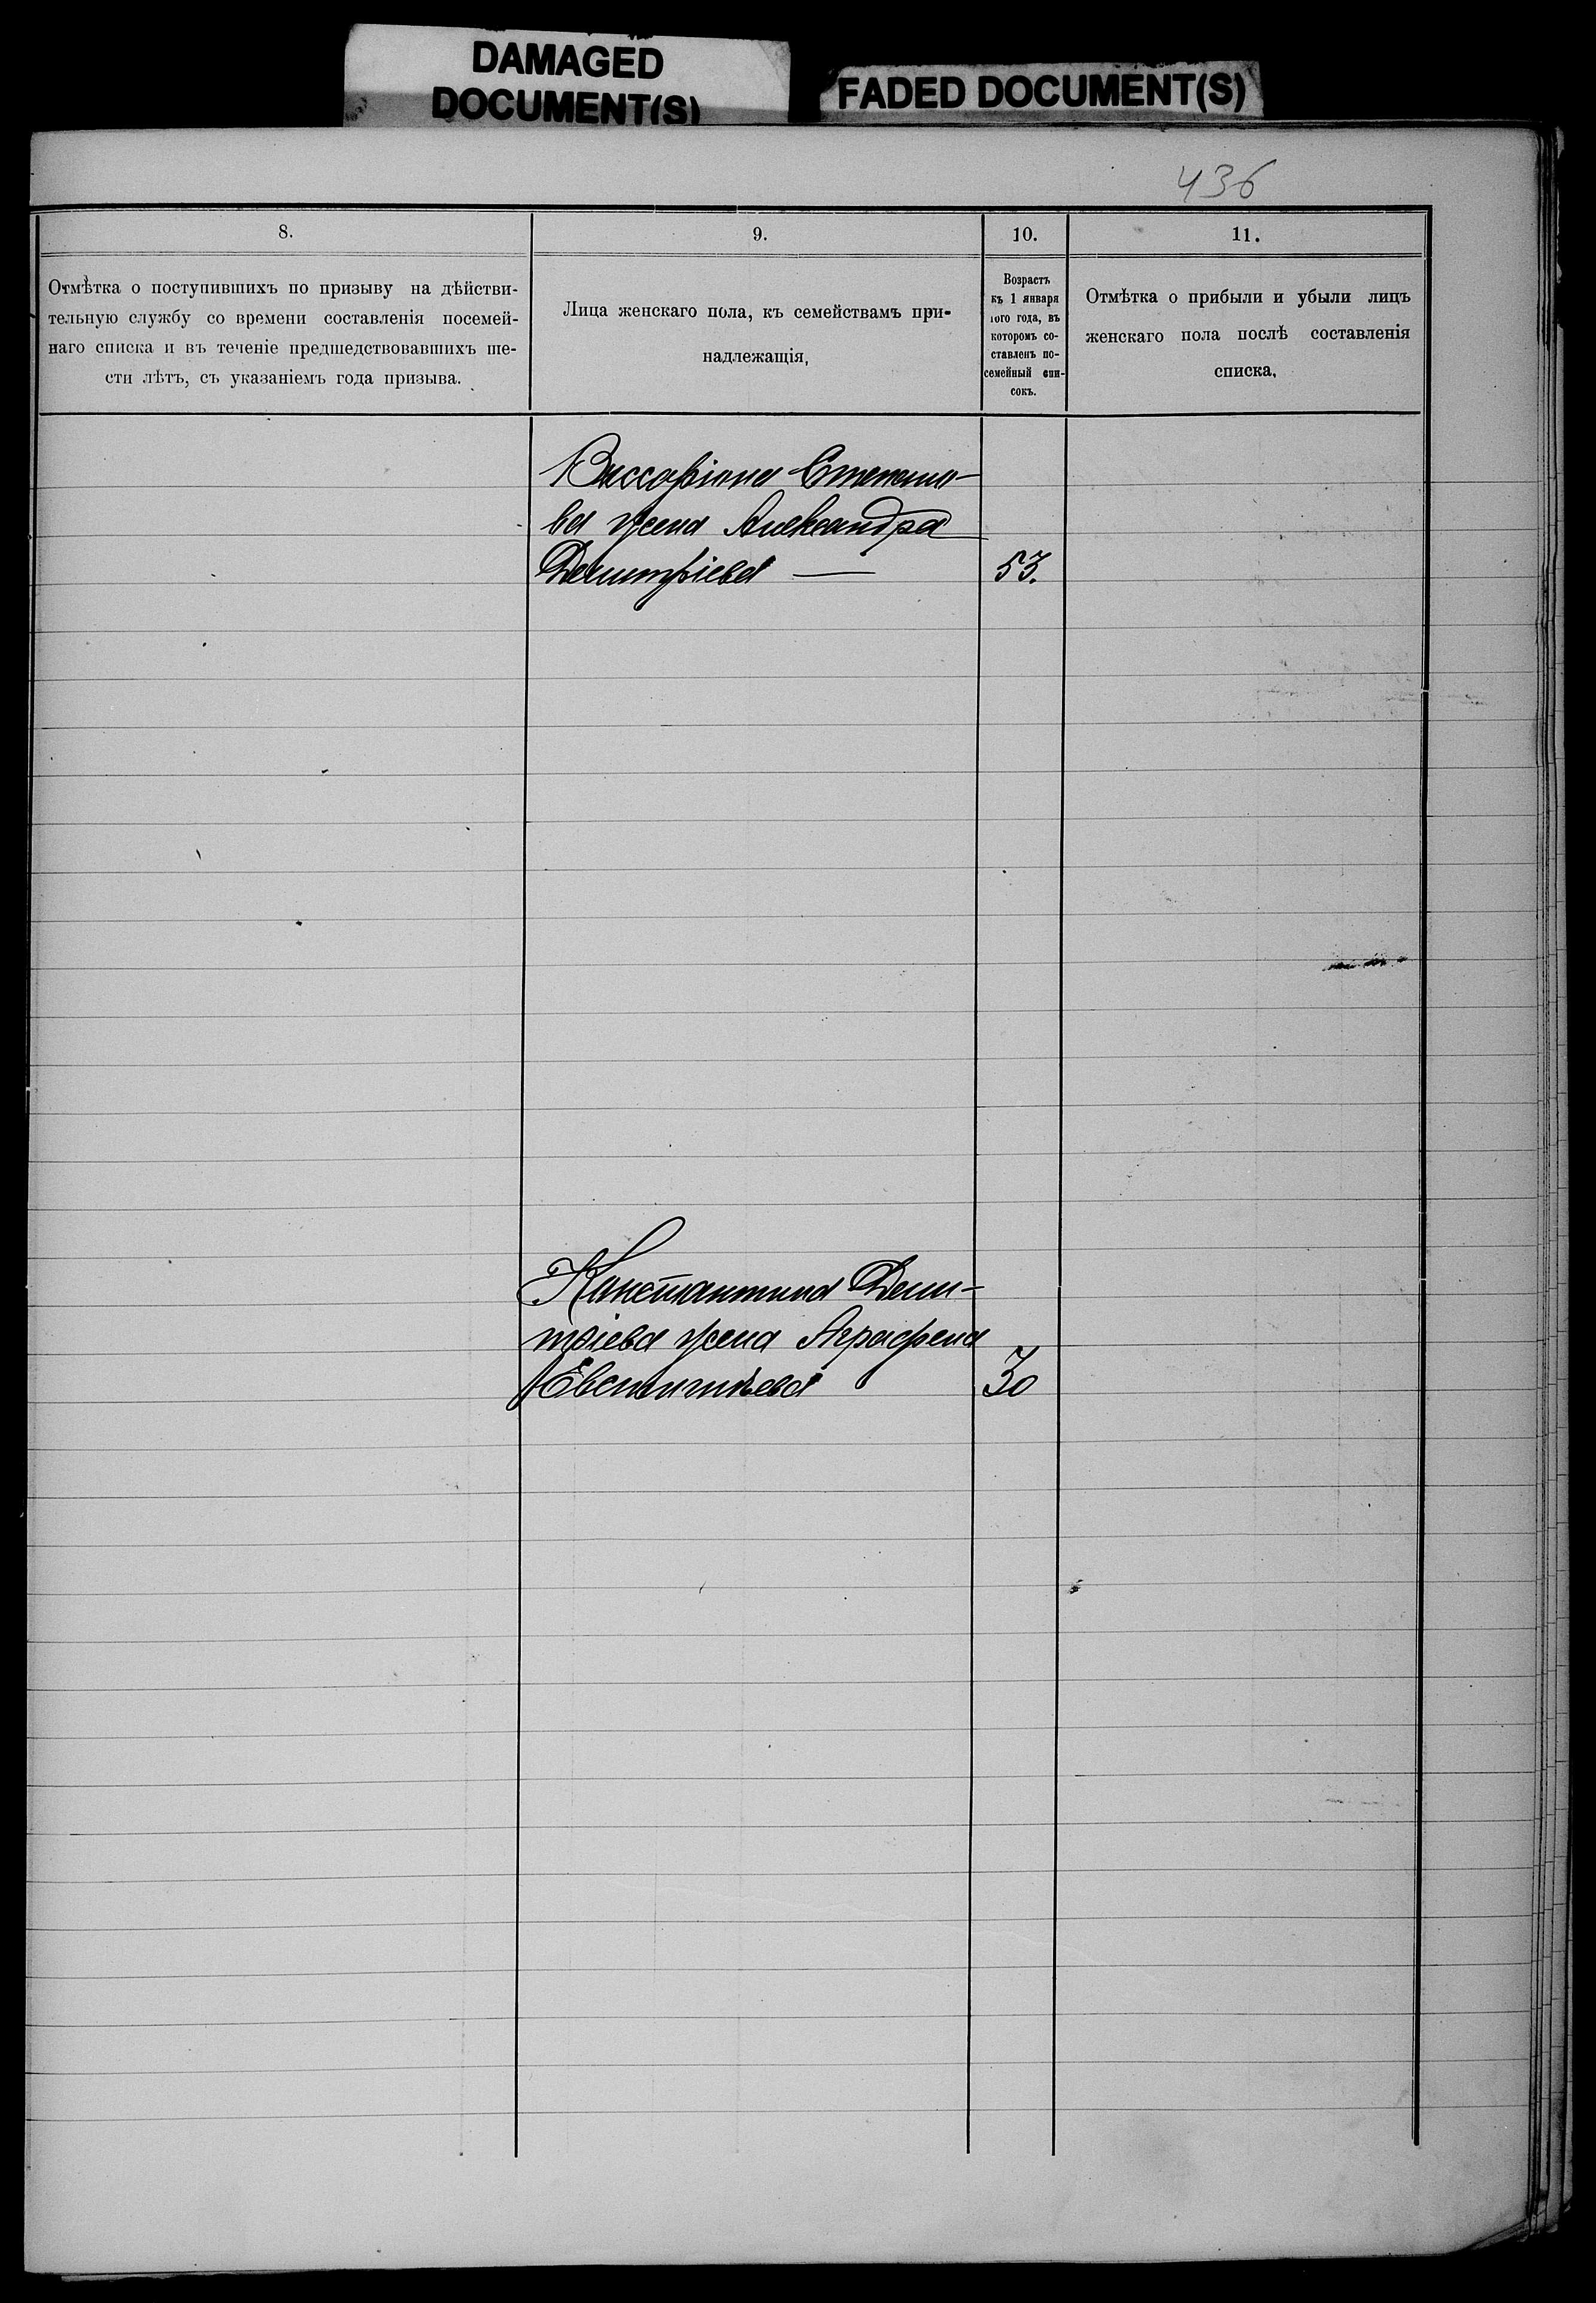 DAMAGED
DOCUMENT(S)
FADED DOCUMENT(S)
436
8.
Отмѣтка о поступившихъ по призыву на дѣйстви-
тельную службу со времени составленія посемей-
наго списка и въ теченіе предшедствовавшихъ ше-
сти лѣтъ, съ указаніемъ года призыва.
9.
Лица женскаго пола, къ семействамъ при-
надлежащія,
10.
Возрастъ
къ 1 января
того года, въ
которомъ со-
ставленъ по-
семейный спи-
сокъ.
11.
Отмѣтка о прибыли и убыли лицъ
женскаго пола послѣ составленія
списка,
Виссаріона Степано-
ва жена Александра
Демитріева — 53.
Константина Деми-
тріева жена Аграфена
Евстигнѣева 30